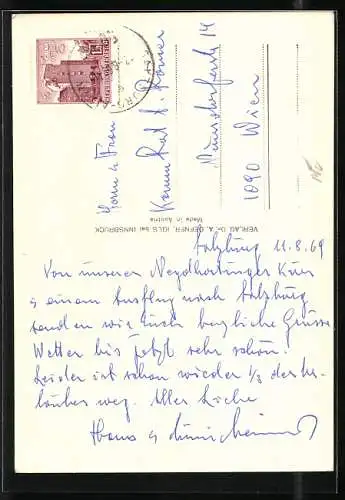 Herrn & Frau
Komm. Rat
1090 Wien
VERLAG Dr. A. DEFNER, IGLS bei INNSBRUCK
Made in Austria
Salzburg 11.8.69
Von unserer Neydhartinger Kur
& einem Ausflug nach Salzburg
senden wir Euch herzliche Grüsse
Wetter bis jetzt sehr schön.
Leider ist schon wieder 1/3 des Ur-
laubes weg. Alles Liebe
Hans &